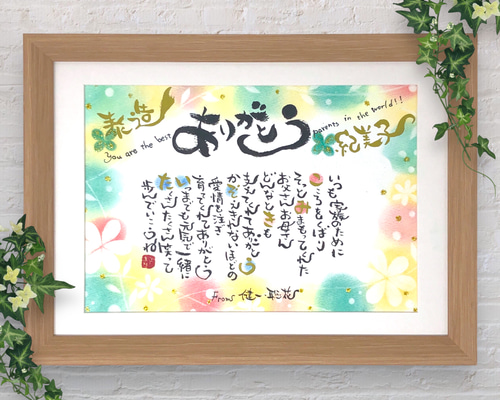 ありがとう
you are the best parents in the world!!
紀美子
いつも家族のために
こころをくばり
そっとみまもってくれた
お父さんお母さん
どんなときも
支えてくれてありがとう
かぞえきれないほどの
愛情を注ぎ
育ててくれてありがとう
いつまでも元気で一緒に
たくさんたくさん笑って
歩んでいこうね
From 健一・聡花